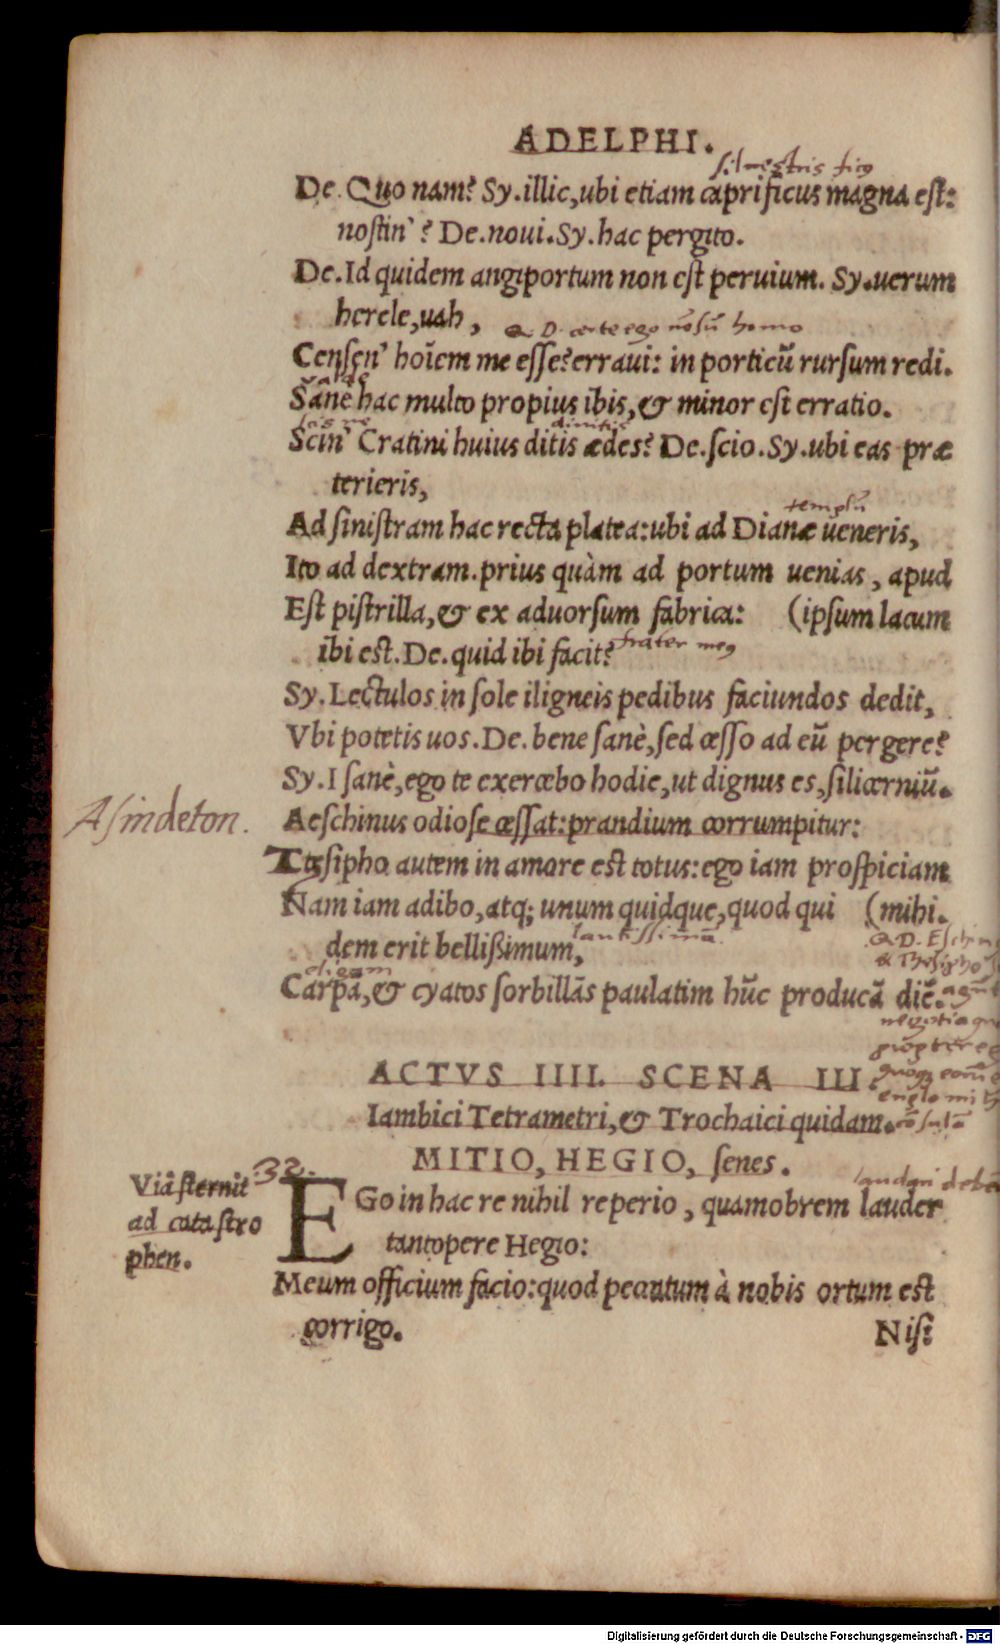 ADELPHI.
siluestris ficus
De. Quo nam? Sy. illic, ubi etiam caprificus magna est:
nostin'? De. noui. Sy. hac pergito.
De. Id quidem angiportum non est peruium. Sy. uerum
hercle, uah,
Censen' hoīem me esse? erraui: in porticū rursum redi.
valde
Sanè hac multo propius ibis, & minor est erratio.
diuitis
Scin' Cratini huius ditis ædes? De. scio. Sy. ubi eas præ
terieris,
templū
Ad sinistram hac recta platea: ubi ad Dianæ ueneris,
Ito ad dextram. prius quàm ad portum uenias, apud
Est pistrilla, & ex aduorsum fabrica: (ipsum lacum
ibi est. De. quid ibi facit? frater meus
Sy. Lectulos in sole iligneis pedibus faciundos dedit,
Vbi potetis uos. De. bene sanè, sed cesso ad eū pergere?
Sy. I sanè, ego te exercebo hodie, ut dignus es, silicerniū.
Asindeton.
Aeschinus odiose cessat: prandium corrumpitur:
Ctesipho autem in amore est totus: ego iam prospiciam
Nam iam adibo, atq; unum quidque, quod qui (mihi.
dem erit bellißimum, lautissimā
Carpā, & cyatos sorbillās paulatim hūc producā diē.
ACTVS IIII. SCENA III.
Iambici Tetrametri, & Trochaici quidam.
MITIO, HEGIO, senes.
32.
Viā sternit
ad catastro
phen.
EGo in hac re nihil reperio, quamobrem lauder
tantopere Hegio:
Meum officium facio: quod peccatum à nobis ortum est
corrigo.
Nisi
Digitalisierung gefördert durch die Deutsche Forschungsgemeinschaft - DFG